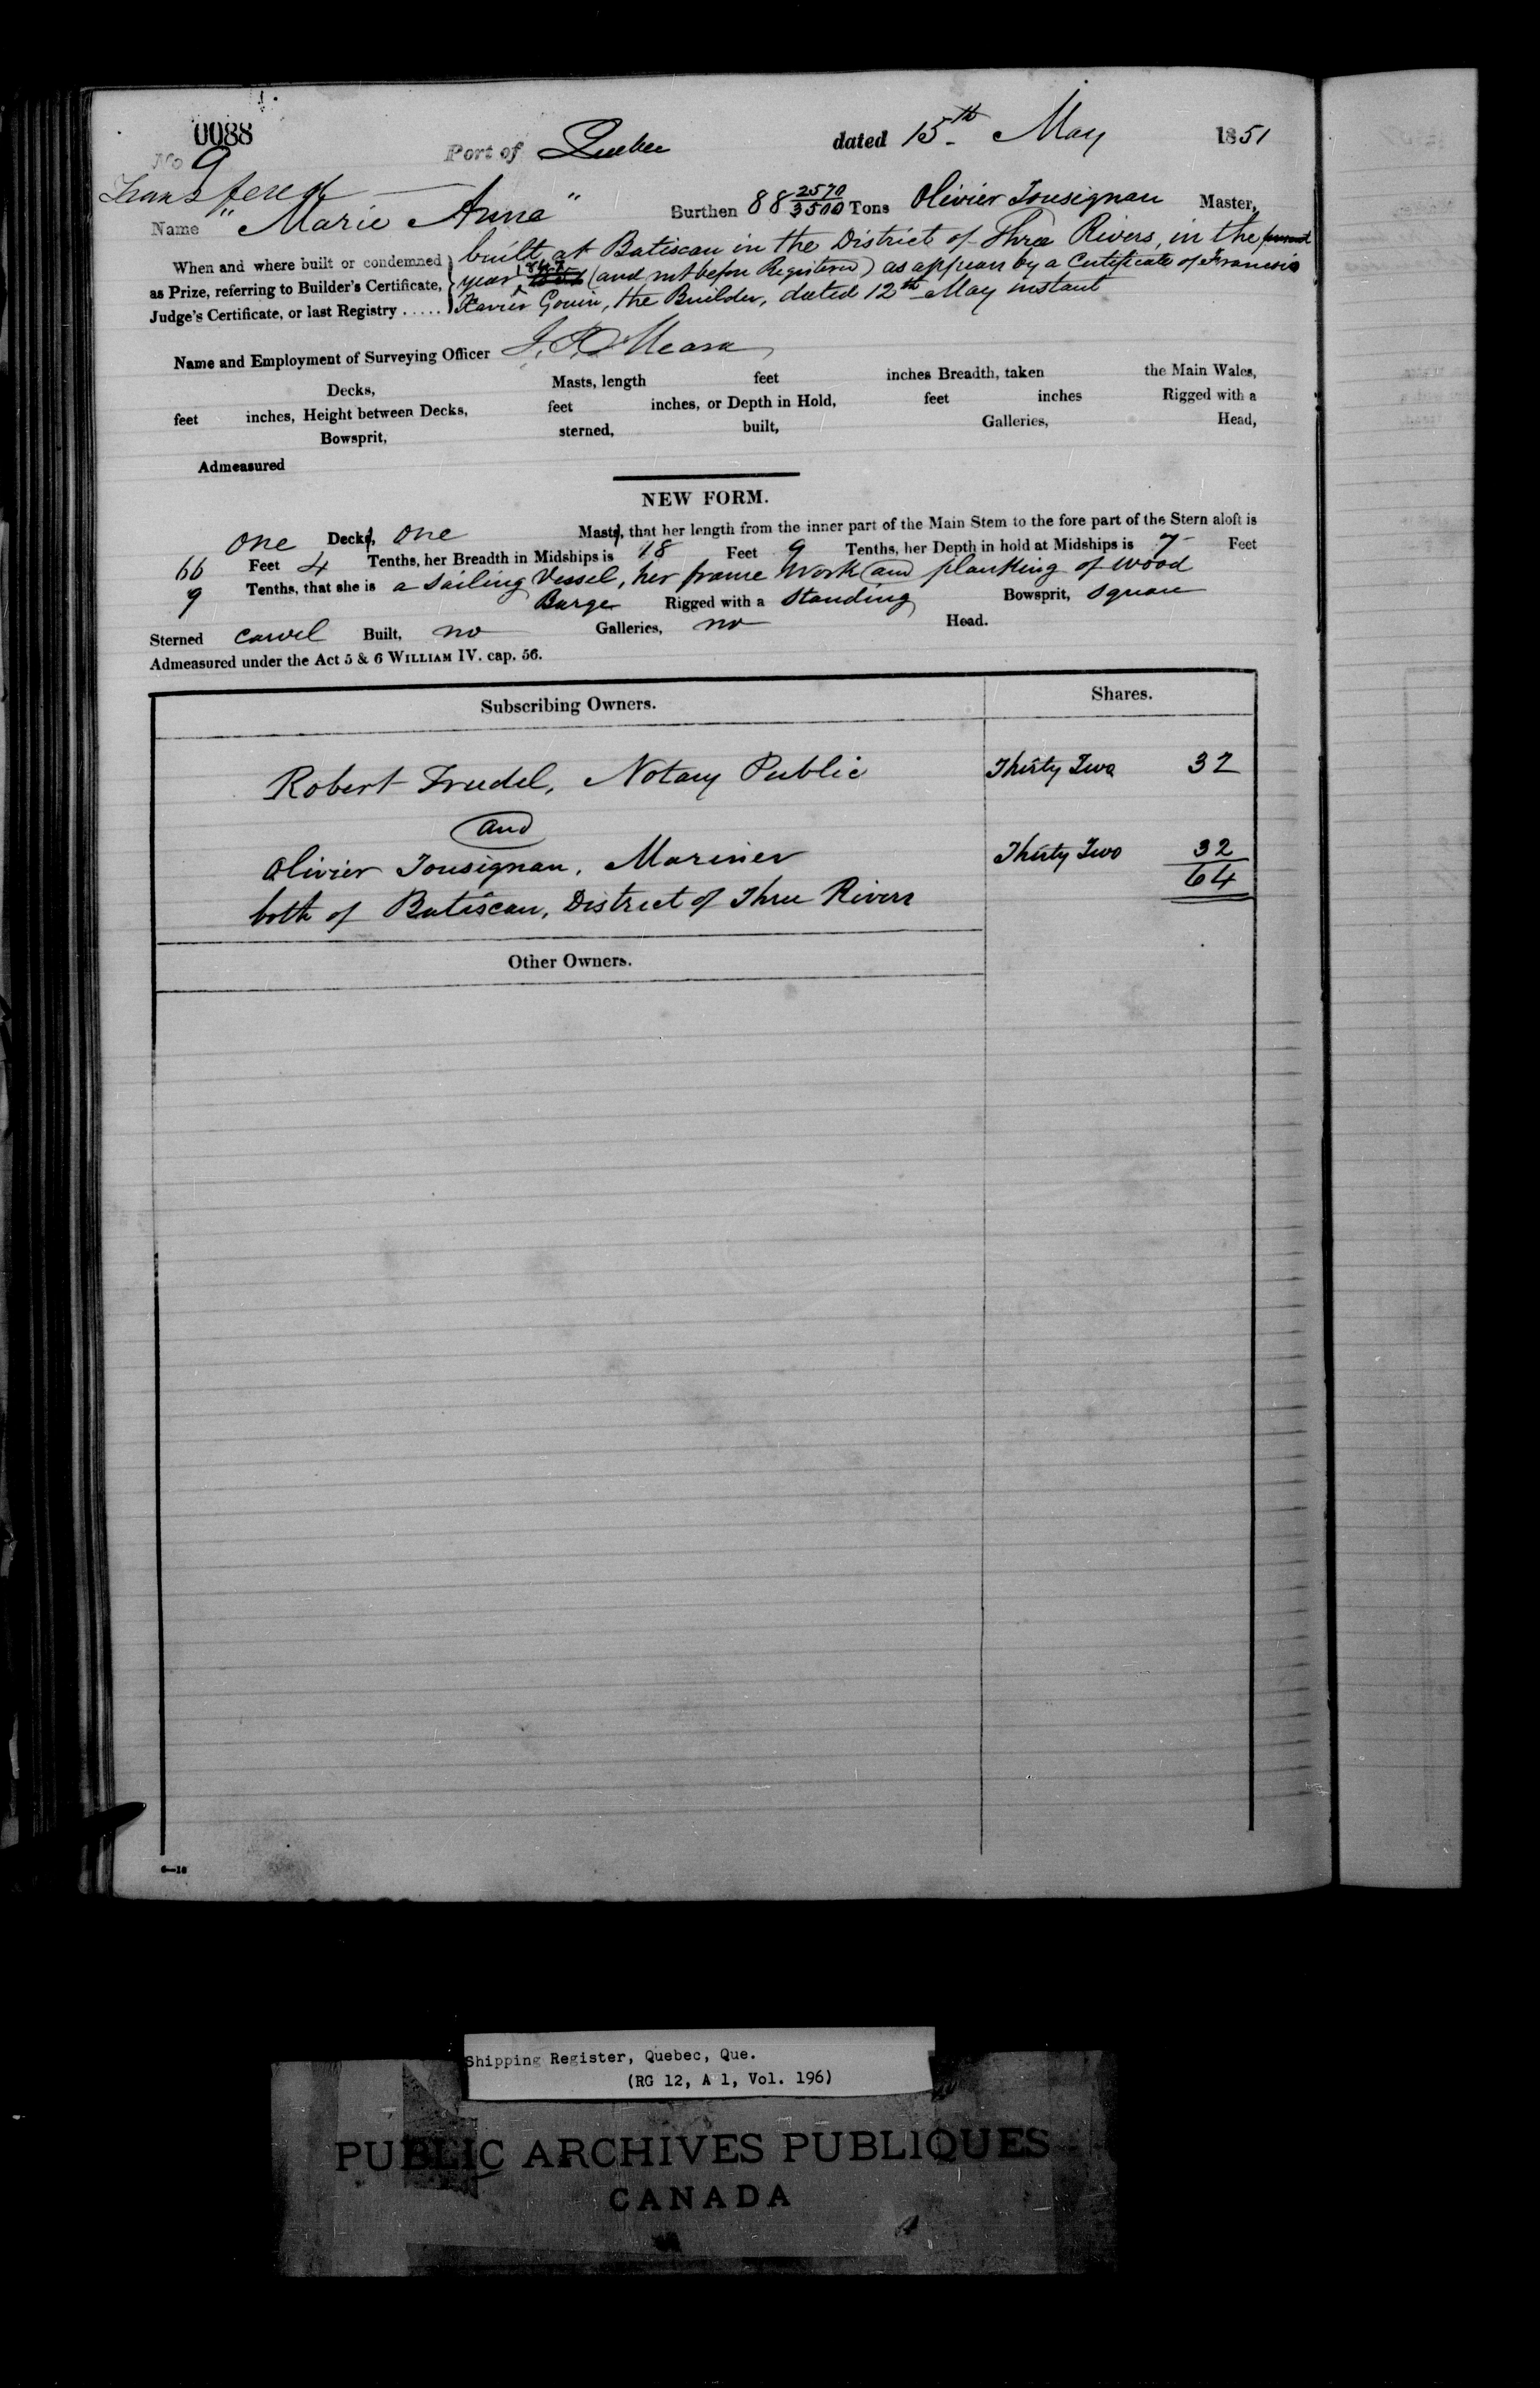 0088
No 9 Port of Quebec dated 15th May 1851
Transfered
Name "Marie Anna" Burthen 88 2570/3500 Tons Olivier Tousignan Master,
When and where built or condemned as Prize, referring to Builder's Certificate, Judge's Certificate, or last Registry .....
built at Batiscan in the District of Three Rivers, in the present
year 1851 (and not before Registered) as appears by a Certificate of Francois
Xavier Gouin, the Builder, dated 12th May instant
Name and Employment of Surveying Officer J. A. O'Meara
Decks, Masts, length feet inches Breadth, taken the Main Wales,
feet inches, Height between Decks, feet inches, or Depth in Hold, feet inches Rigged with a
Bowsprit, sterned, built, Galleries, Head,
Admeasured
NEW FORM.
One Decks, One Masts, that her length from the inner part of the Main Stem to the fore part of the Stern aloft is
66 Feet 4 Tenths, her Breadth in Midships is 18 Feet 9 Tenths, her Depth in hold at Midships is 7 Feet
9 Tenths, that she is a Sailing Vessel, her frame work and planking of wood
Barge Rigged with a Standing Bowsprit, Square
Sterned carvel Built, no Galleries, no Head.
Admeasured under the Act 5 & 6 WILLIAM IV. cap. 56.
Subscribing Owners. Shares.
Robert Trudel, Notary Public Thirty Two 32
and
Olivier Tousignan, Mariner Thirty Two 32
both of Batiscan, District of Three Rivers 64
Other Owners.
6—10
Shipping Register, Quebec, Que.
(RG 12, A 1, Vol. 196)
PUBLIC ARCHIVES PUBLIQUES
CANADA